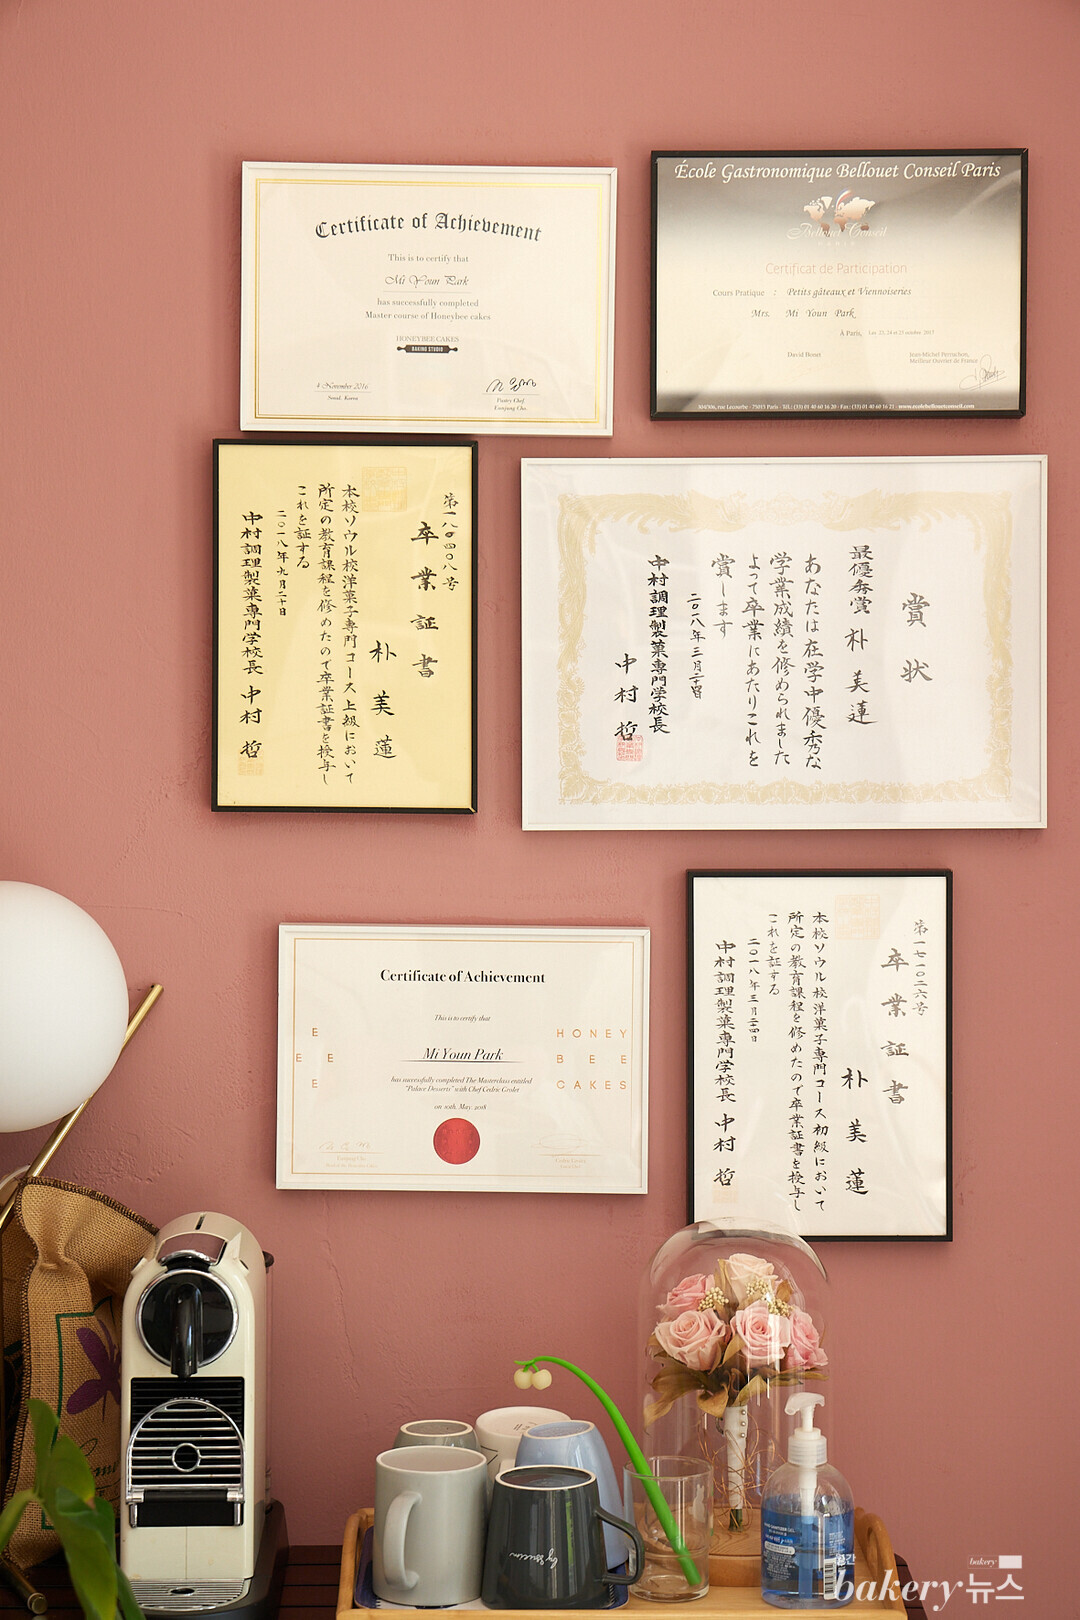 Certificate of Achievement
This is to certify that
Mi Youn Park
has successfully completed
Master course of Honeybee cakes
HONEYBEE CAKES
BAKING STUDIO
4 November 2016
Seoul, Korea
Pastry Chef
Eunjung Cho
École Gastronomique Bellouet Conseil Paris
Bellouet Conseil
PARIS
Certificat de Participation
Cours Pratique : Petits gâteaux et Viennoiseries
Mrs. Mi Youn Park
À Paris, Les 23, 24 et 25 octobre 2017
David Bonet
Jean-Michel Perruchon,
Meilleur Ouvrier de France
304/306, rue Lecourbe - 75015 Paris - Tél.: (33) 01 40 60 16 20 - Fax : (33) 01 40 60 16 21 - www.ecolebellouetconseil.com
第一八〇四〇八号
卒業証書
朴美蓮
本校ソウル校洋菓子専門コース上級において
所定の教育課程を修めたので卒業証書を授与し
これを証する
二〇一八年九月二十日
中村調理製菓専門学校長 中村 哲
賞状
最優秀賞 朴美蓮
あなたは在学中優秀な
学業成績を修められました
よって卒業にあたりこれを
賞します
二〇一八年三月二十四日
中村調理製菓専門学校長
中村 哲
Certificate of Achievement
This is to certify that
Mi Youn Park
has successfully completed The Masterclass entitled
"Palace Desserts" with Chef Cedric Grolet
on 10th. May. 2018
E
E E
E
HONEY
BEE
CAKES
第一七一〇二六号
卒業証書
朴美蓮
本校ソウル校洋菓子専門コース初級において
所定の教育課程を修めたので卒業証書を授与し
これを証する
二〇一八年三月二十四日
中村調理製菓専門学校長 中村 哲
bakery
공간
bakery뉴스